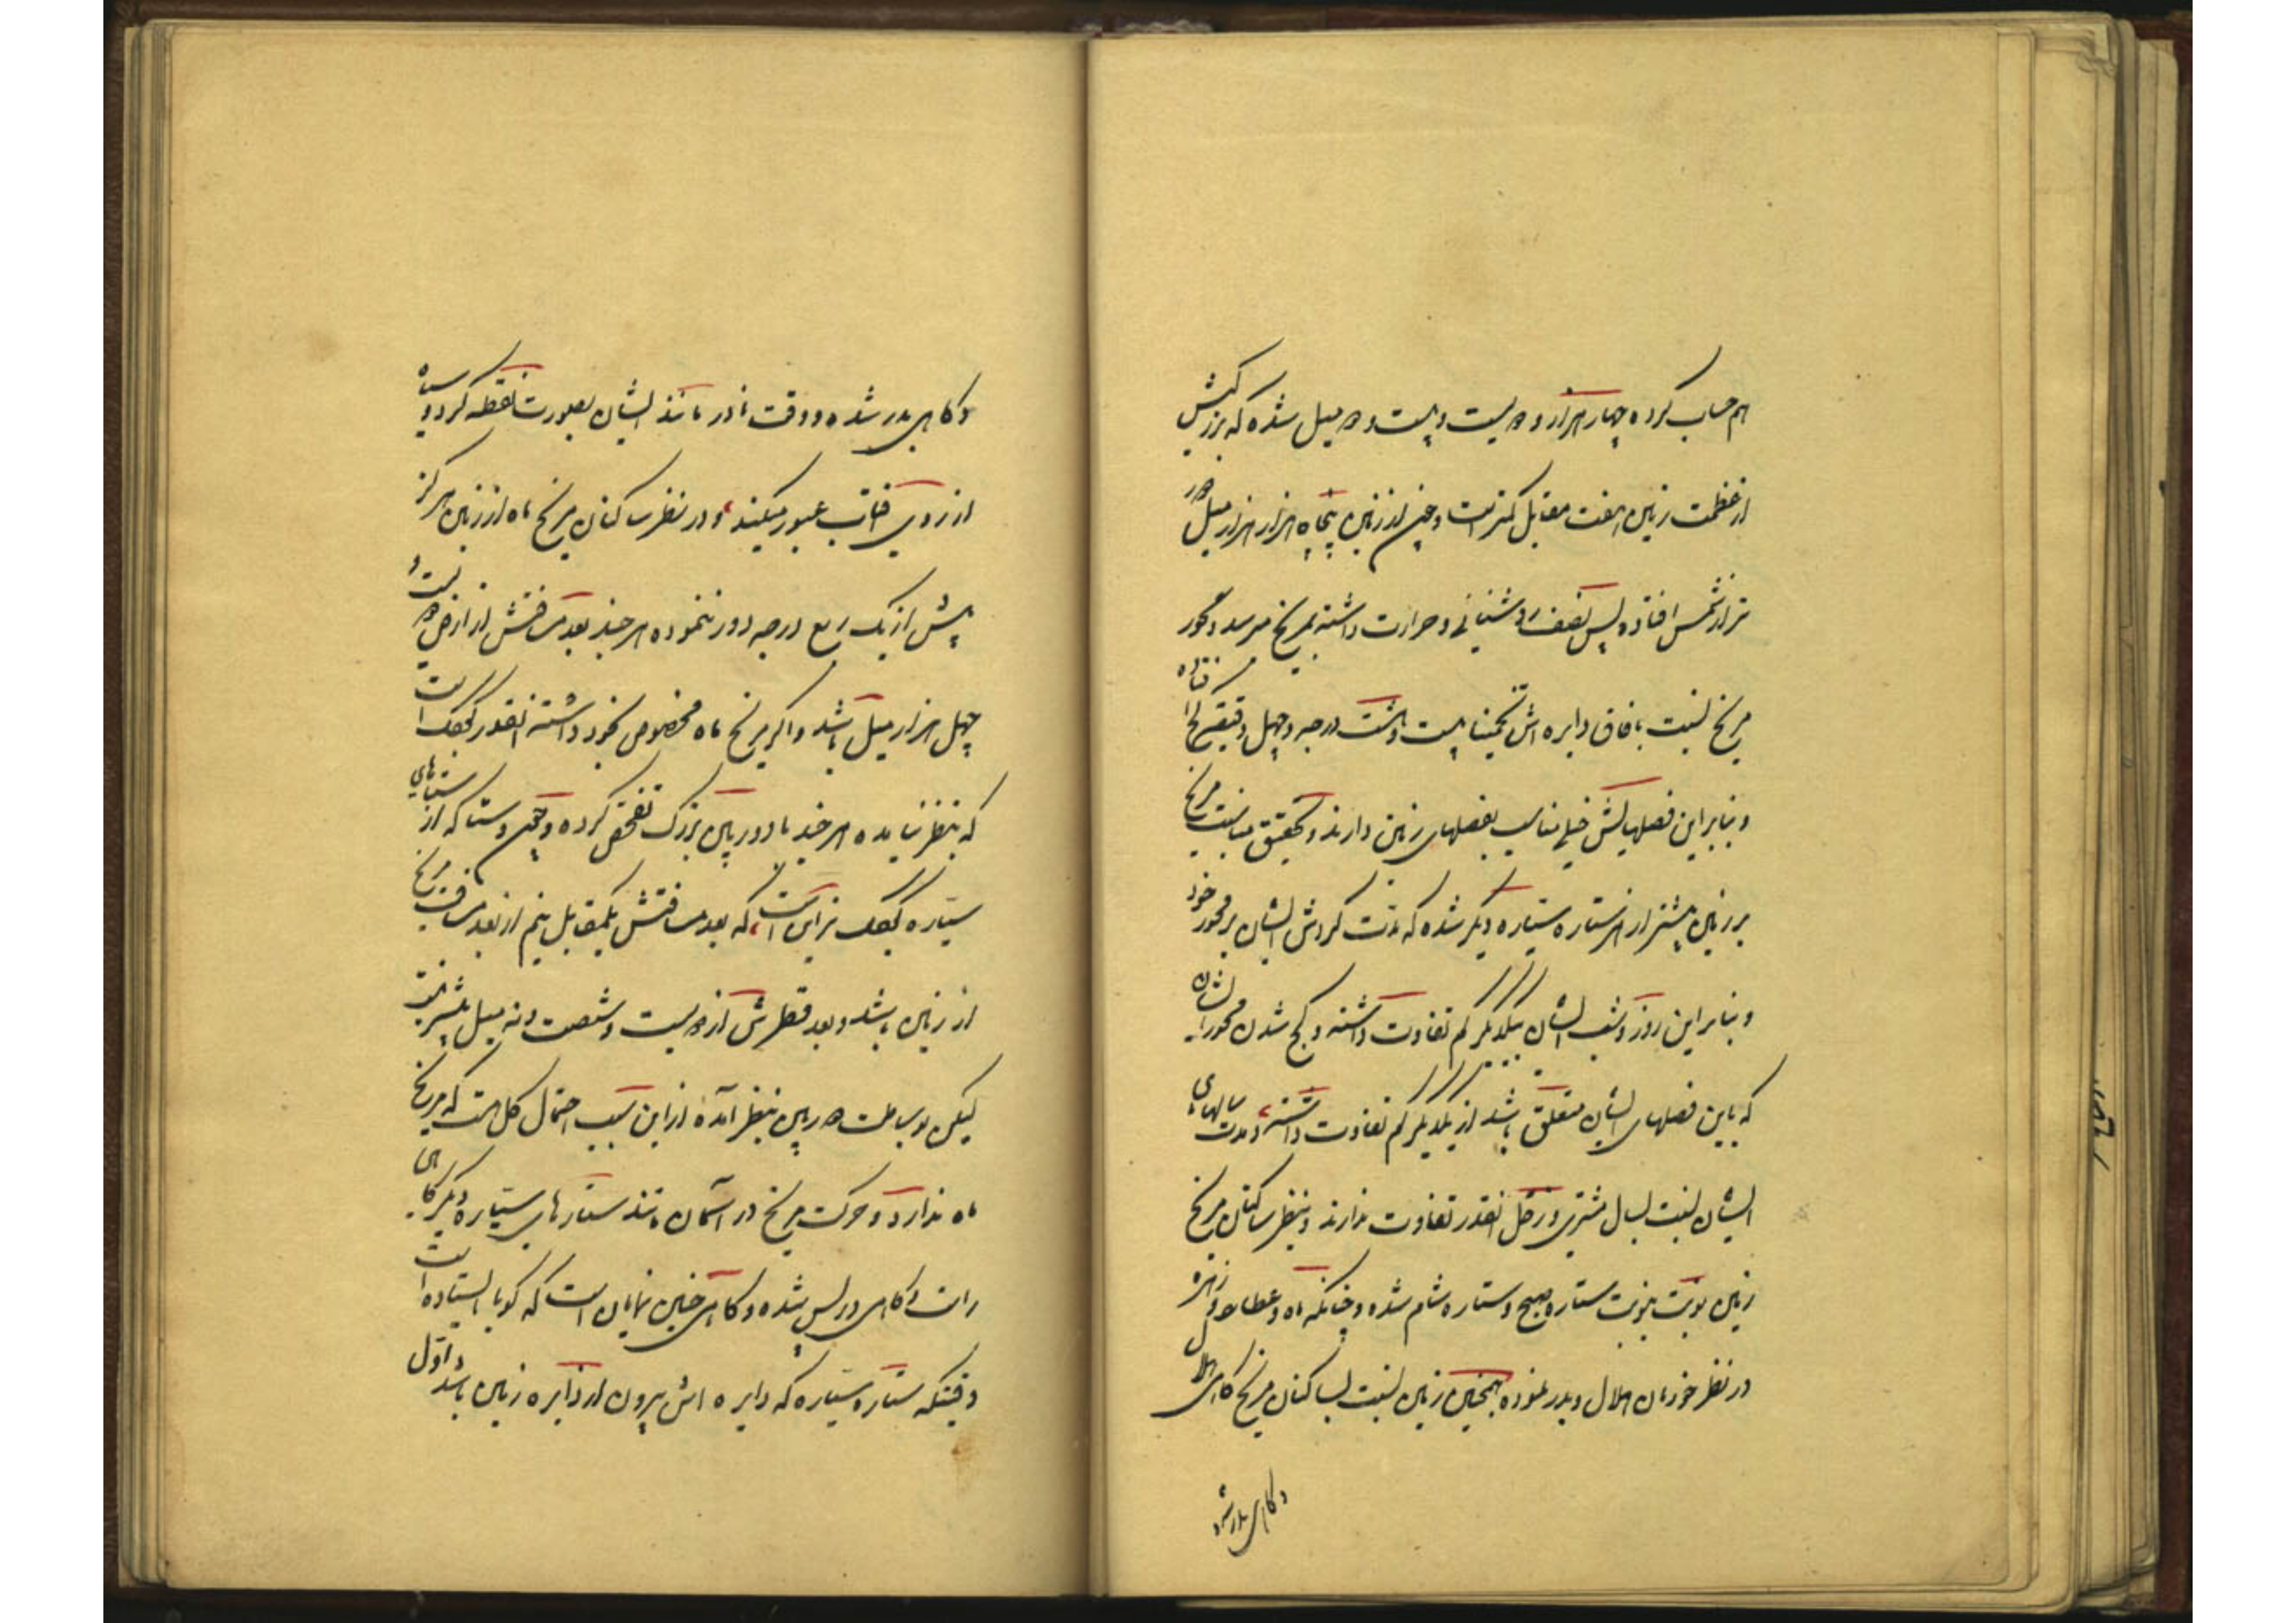 هم حساب کرده چهار هزار و دویست و بیست و دو میل شده که بزرگیش
از عظمت زمین هفت مقابل کمتر است و چون از زمین پنجاه هزار هزار میل دور
تر از شمس افتاده پس نصف روشنائی و حرارت داشته بمریخ میرسد و محور
مریخ نسبت بافاق دایره اش تخمینا بیست و هشت درجه و چهل دقیقه کج افتاده
و بنابراین فصلهایش خیلی مناسب بفصلهای زمین دارند و بتحقیق مناسبت مریخ
بر زمین بیشتر از هر ستاره سیاره دیگر شده که مدت گردش ایشان بر محور خود
و بنابراین روز و شب ایشان بیکدیگر کم تفاوت داشته و کج شدن محور ایشان
که باین فصلهای ایشان متعلق باشد از یکدیگر کم تفاوت داشته و مدت سالهای
ایشان نسبت بسال مشتری و زحل آنقدر تفاوت ندارند و بنظر ساکنان مریخ
زمین نوبت بنوبت ستاره صبح و ستاره شام شده و چنانکه ماه و عطارد و زهره
در نظر خودمان هلال و بدر نموده همچنین زمین نسبت بساکنان مریخ گاهی هلال
و گاهی بدر شده
و گاهی بدر شده و وقت نادر مانند ایشان بصورت نقطه گرد و سیاه
از روی آفتاب عبور میکنند و در نظر ساکنان مریخ ماه از زمین هرگز
بیش از یک ربع درجه دور ننموده هر چند بعد مسافتش از ارض دویست و
چهل هزار میل باشد و اگر مریخ ماه مخصوص بخود داشته آنقدر کوچک است
که بنظر نیامده هر چند با دوربین بزرگ تفحص کرده و چون دوستا که از ستاره‌های
سیاره کوچک‌تر این است که بعد مسافتش یکمقابل نیم از بعد مسافت مریخ
از زمین باشد و بعد قطرش از دویست و شصت و نه میل بیشتر نیست
لیکن بوساطت دوربین بنظر آمده از این سبب احتمال کل هست که مریخ
ماه ندارد و حرکت مریخ در آسمان مانند ستاره‌های سیاره دیگر گاهی
راست و گاهی در پس شده و گاهی چنین نمایان است که گویا ایستاده است
وقتیکه ستاره سیاره که دایره اش بیرون از دایره زمین باشد و اول